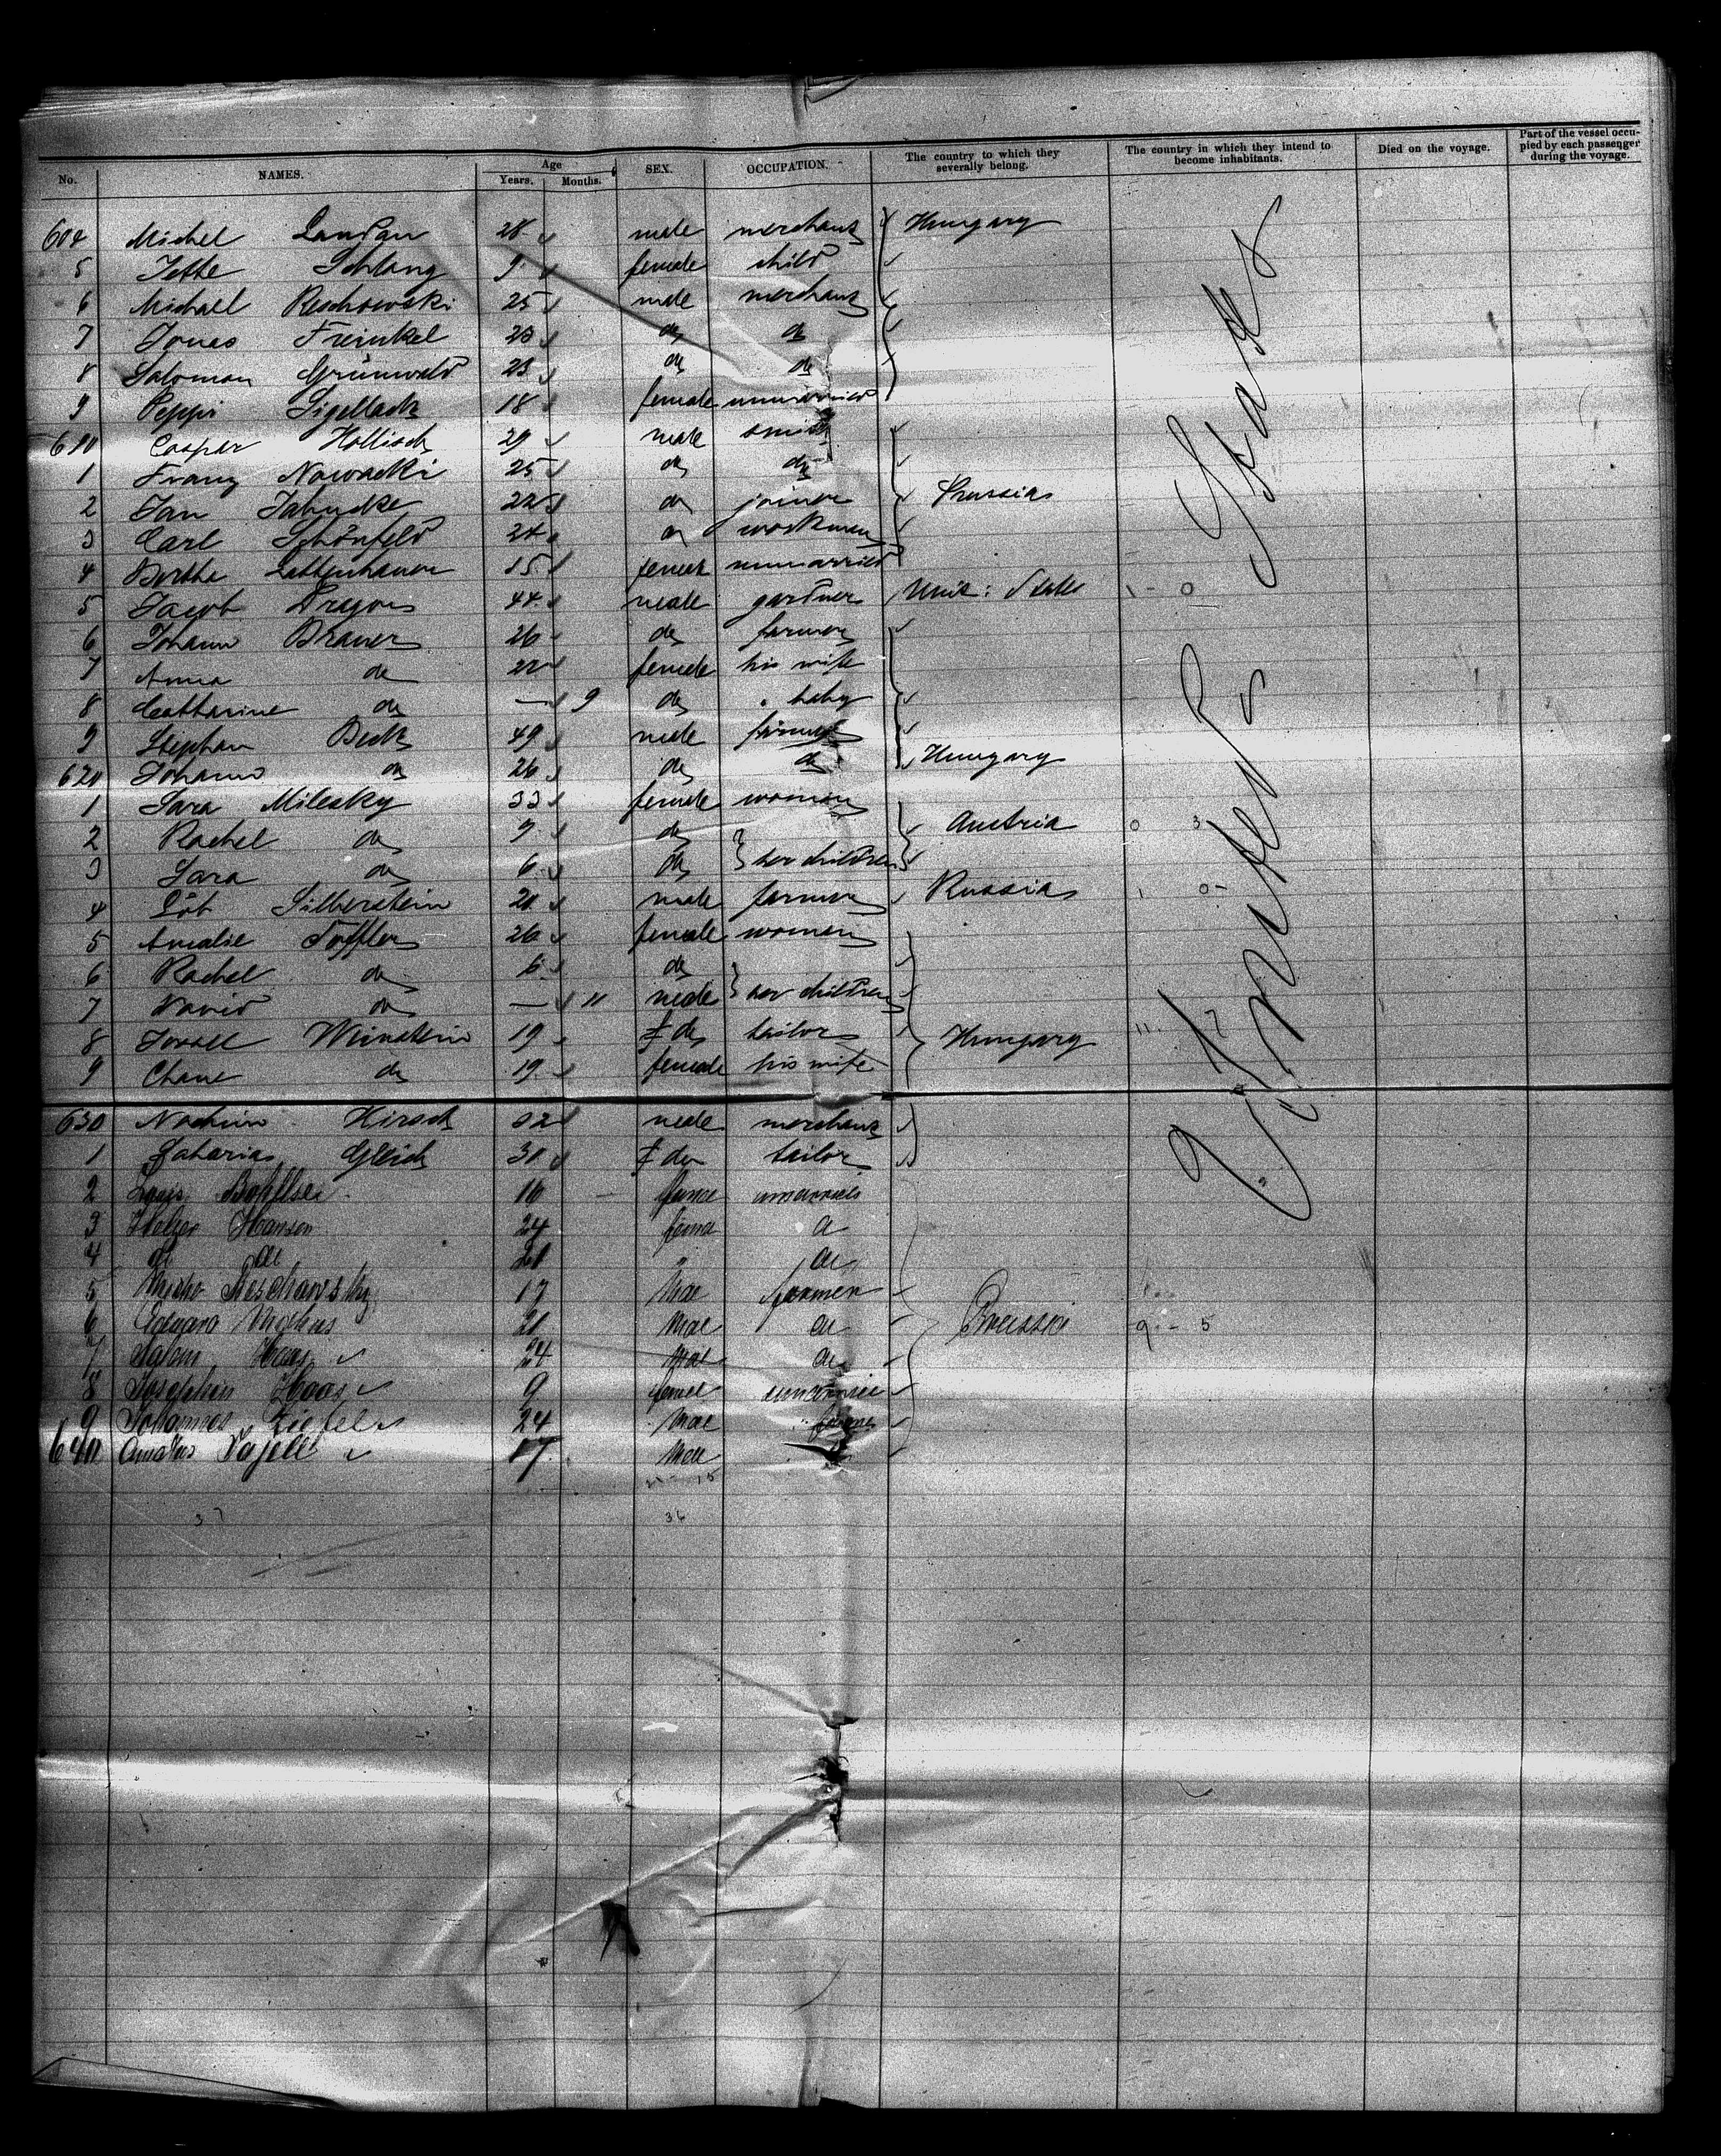 No. NAMES. Age Years. Months. SEX. OCCUPATION. The country to which they severally belong. The country in which they intend to become inhabitants. Died on the voyage. Part of the vessel occupied by each passenger during the voyage.
604 Michel Landau 28 male merchant Hungary
5 Jette Schlang 9 female child
6 Michael Reschowski 25 male merchant
7 Jones Freinkel 23 do do
8 Salomon Grünwald 23 do do
9 Peppi Sigellack 18 female unmarried
610 Caspar Hollisch 29 male smith
1 Franz Nowacki 25 do do
2 Jan Jahncke 22 do joiner Prussia
3 Carl Schönfeld 24 do workman
4 Berthe Lettenhauer 15 female unmarried
5 Jacob Dragon 44 male gardner Unit: States 1 - 0
6 Johann Brauer 26 do farmer
7 Anna do 22 female his wife
8 Catharine do — 9 do baby
9 Stephan Beck 49 male farmer
620 Johann do 26 do do Hungary
1 Sara Milesky 33 female woman
2 Rachel do 9 do Austria 0 3
3 Sara do 6 do her children
4 Löb Silberstein 20 male farmer Russia 1 0-
5 Amalie Toffler 26 female woman
6 Rachel do 6 do
7 David do — 11 male her children
8 do tailor Hungary 11. 7
9 Chane do 19 female his wife
United States
630 Nochim Hirsch 32 male merchant
1 Zacharias Gleich 30 do tailor
2 16 unmarried
3 Hansen 24 female do
4 do do 21 " do
5 17 Male farmer
6 21 Male do Preussin 9 - 5
7 Haas 24 Male do
8 Josephin Haas 9 female unmarried
9 Johannes 24 Male
640 17 Male
15
37 36